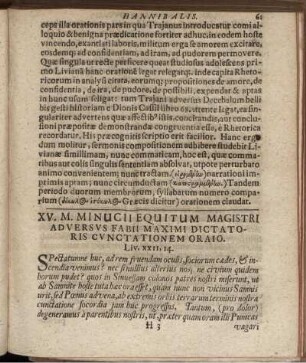 HANNIBALIS. 61
cepr illa orationis pars in qua Trajanus introducatur comi al-
loquio & benigna prædicatione fortiter adhuc in eodem hoste
vincendo, exantlari laboris, militum erga se amorem excitare,
eosdemque ad confidentiam, ad iram, ad pudorem permovere.
Quæ singula ut recte perficere queat studiosus adolescens pri-
mo Liviana hanc orationē legat relegatq;. Inde capita Rheto-
ricorum in analysi citata, eorumq; propositiones de amore, de
confidentia, de ira, de pudore, de possibili, expendat & aptas
in hunc usum seligat: tum Trajani adversus Decebalum belli
he gesti historiam e Dionis Cassii libro 68. attente legat, ut
guleriter advertens quæ affectib⁹ istis concitandis, aut conclu-
sioni præpositæ demonstrandæ congruentia essē, è Rhetorica
recordatur. His præcognitis scriptio erit facilior. Hanc
dum molitur, sermonis compositionem adhibere studebit Li-
vianæ simillimam, nunc commaticam, hoc est, quæ comma-
tibus aut colis singulis sententiam absolvat, utpote perturbato
animo convenientem; nunc tractam narrationi im-
primis aptam; nunc circumductam Tandem
periodo duorum membrorum, syllabarum numero compa-
rium Græcis dicitur) orationem claudat.
XV. M. MINUCII EQUITUM MAGISTRI
ADVERSVS FABII MAXIMI DICTATO-
RIS CVNCTATIONEM ORAIO.
LIV. XXII, 14.
SPectatumne huc, ad rem fruendam oculis, sociorum cædes, & in-
cendia venimus? nec si nullius alterius nos, ne civium quidem
horum pudet? quos ci Sinuessam colonos patres nostri miserunt, ut
ab Samnite hoste tuta hæc ora esset, quam nunc non vicinus Samnis
urit, sed Pœnus advena, ab extremis orbis terrarum terminis nostra
cunctatione socordia jam huc progressus. Tantum, (pro dolor)
degeneramus à parentibus nostris, ut, præter quam oram illi Punicas
H 3 vagari